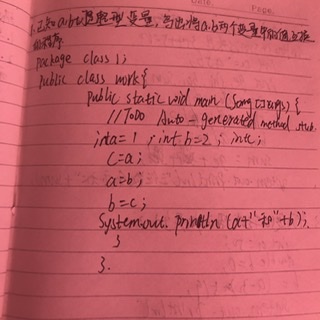 1.已知a.b以整型变量,写出将a.b两个变量中的值互换
的程序
Package class 1;
Public class work{
public static void main (Song []args) {
//ToDo Auto-generated method stub
inta=1 ; int b=2 ; intc;
c=a;
a=b;
b=c;
System.out. println (a+"和"+b);
}
}.